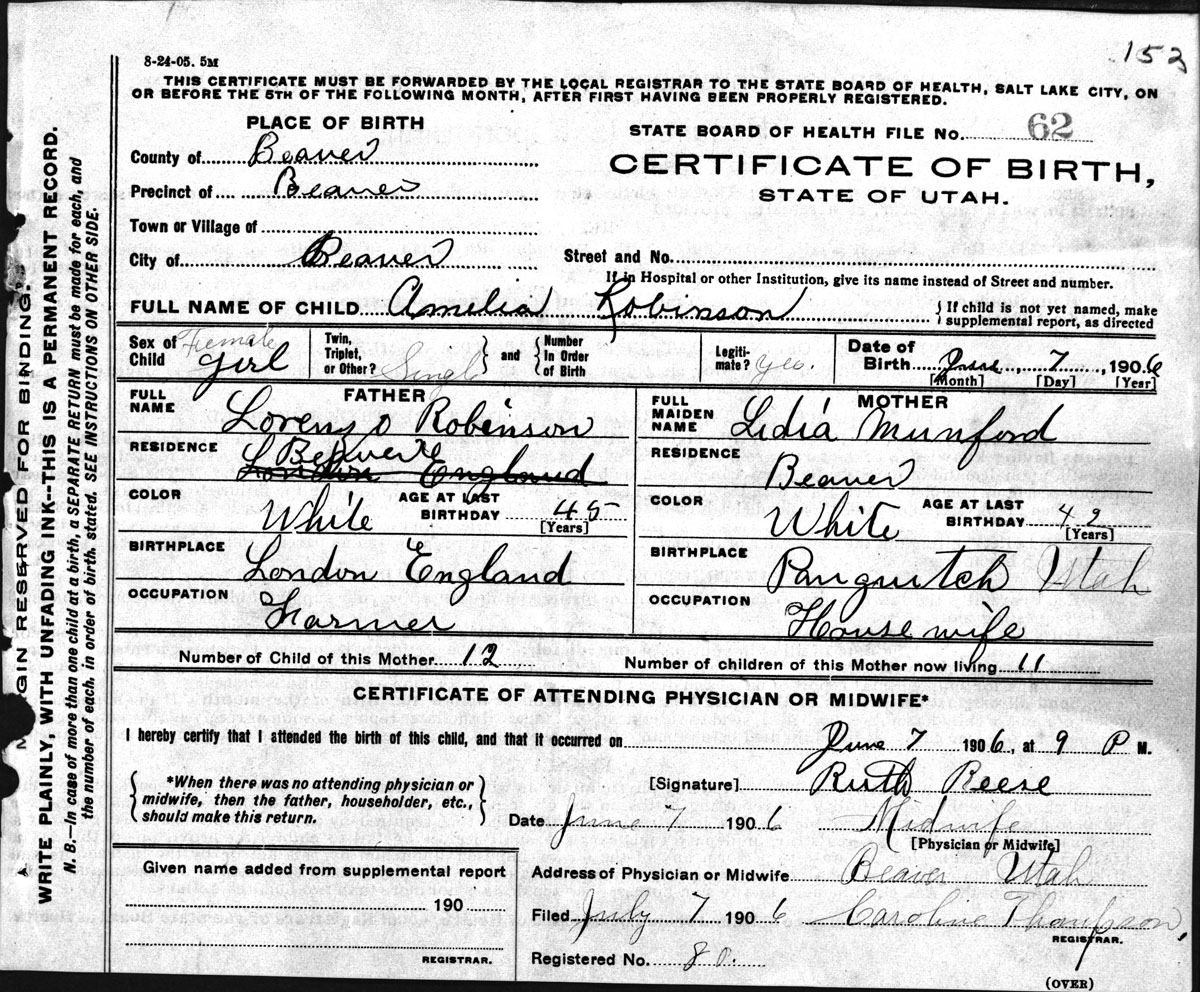 152
8-24-05. 5M
THIS CERTIFICATE MUST BE FORWARDED BY THE LOCAL REGISTRAR TO THE STATE BOARD OF HEALTH, SALT LAKE CITY, ON
OR BEFORE THE 5TH OF THE FOLLOWING MONTH, AFTER FIRST HAVING BEEN PROPERLY REGISTERED.
PLACE OF BIRTH
STATE BOARD OF HEALTH FILE No. 62
County of Beaver
CERTIFICATE OF BIRTH,
Precinct of Beaver
STATE OF UTAH.
Town or Village of
City of Beaver Street and No.
If in Hospital or other Institution, give its name instead of Street and number.
FULL NAME OF CHILD Amelia Robinson { If child is not yet named, make
supplemental report, as directed
Sex of Child Female girl
Twin, Triplet, or Other? Single } and { Number In Order of Birth
Legiti-mate? yes.
Date of Birth June, 7, 1906
[Month] [Day] [Year]
FATHER
FULL NAME Lorenzo Robinson
RESIDENCE Beaver
London England
COLOR White AGE AT LAST BIRTHDAY 48
[Years]
BIRTHPLACE London England
OCCUPATION Farmer
MOTHER
FULL MAIDEN NAME Lidia Munford
RESIDENCE Beaver
COLOR White AGE AT LAST BIRTHDAY 42
[Years]
BIRTHPLACE Panguitch Utah
OCCUPATION House wife
Number of Child of this Mother 12 Number of children of this Mother now living 11
CERTIFICATE OF ATTENDING PHYSICIAN OR MIDWIFE*
I hereby certify that I attended the birth of this child, and that it occurred on June 7 1906, at 9 P M.
{ *When there was no attending physician or
midwife, then the father, householder, etc.,
should make this return. }
[Signature] Ruth Reese
Date June 7 1906 Midwife
[Physician or Midwife]
Address of Physician or Midwife Beaver Utah
Filed July 7 1906 Caroline Thompson,
REGISTRAR.
Registered No. 80.
Given name added from supplemental report
190
REGISTRAR.
(OVER)
MARGIN RESERVED FOR BINDING.
WRITE PLAINLY, WITH UNFADING INK--THIS IS A PERMANENT RECORD.
N. B.--In case of more than one child at a birth, a SEPARATE RETURN must be made for each, and
the number of each, in order of birth, stated. SEE INSTRUCTIONS ON OTHER SIDE.